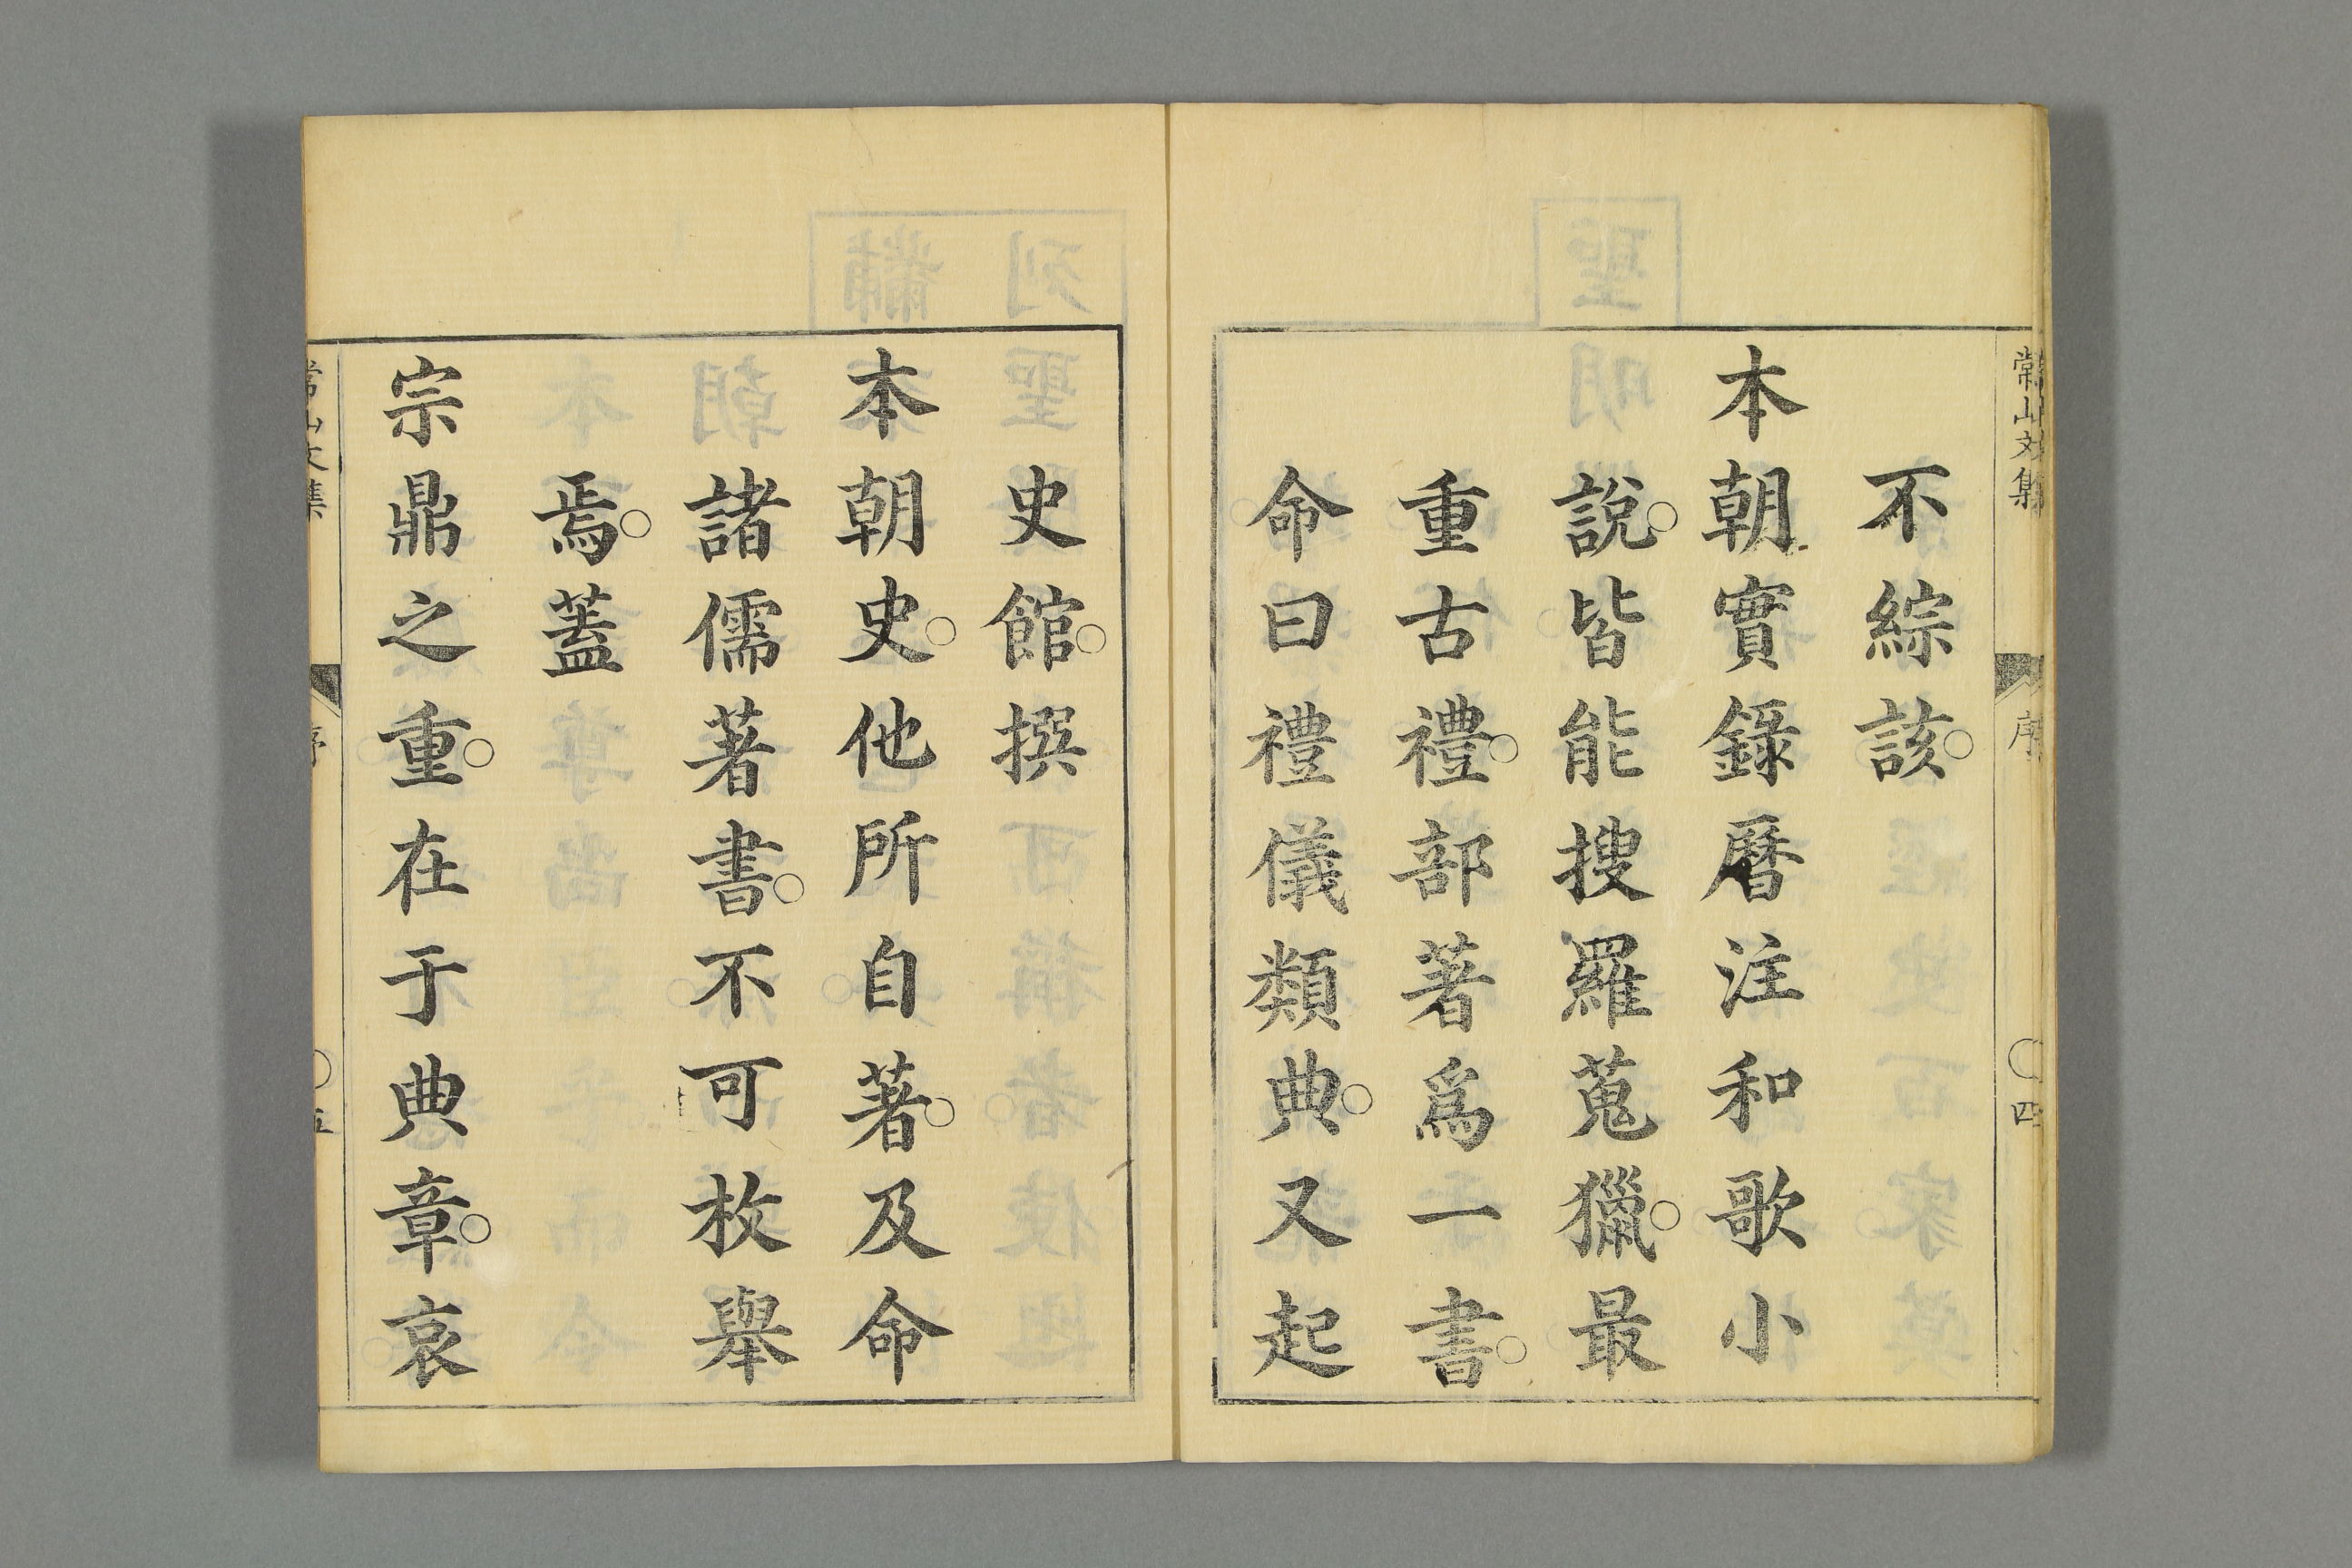 常山文集 序 〇四
不綜該○
本朝實錄曆注和歌小
說○皆能搜羅蒐獵○最
重古禮○部著爲一書○
命曰禮儀類典○又起
史館○撰
本朝史○他所自著○及命
諸儒著書○不可枚舉
焉○蓋
宗鼎之重○在于典章○哀
常山文集 序 〇五